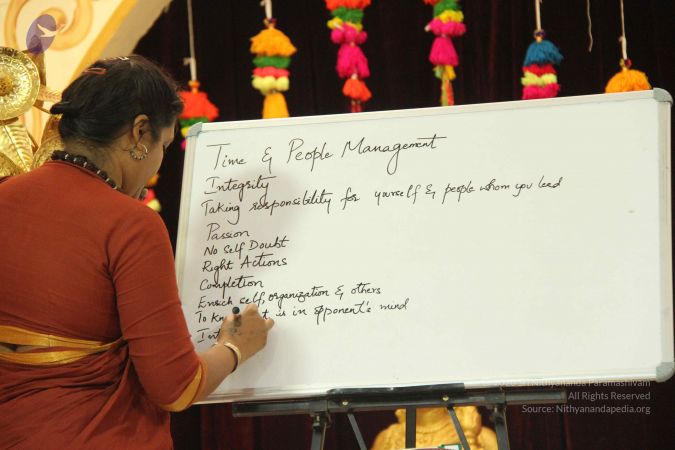 Time & People Management
Integrity
Taking responsibility for yourself & people whom you lead
Passion
No Self Doubt
Right Actions
Completion
Enrich self, organization & others
To is in opponent's mind
Nithyananda Paramashivam
All Rights Reserved
Source: Nithyanandapedia.org